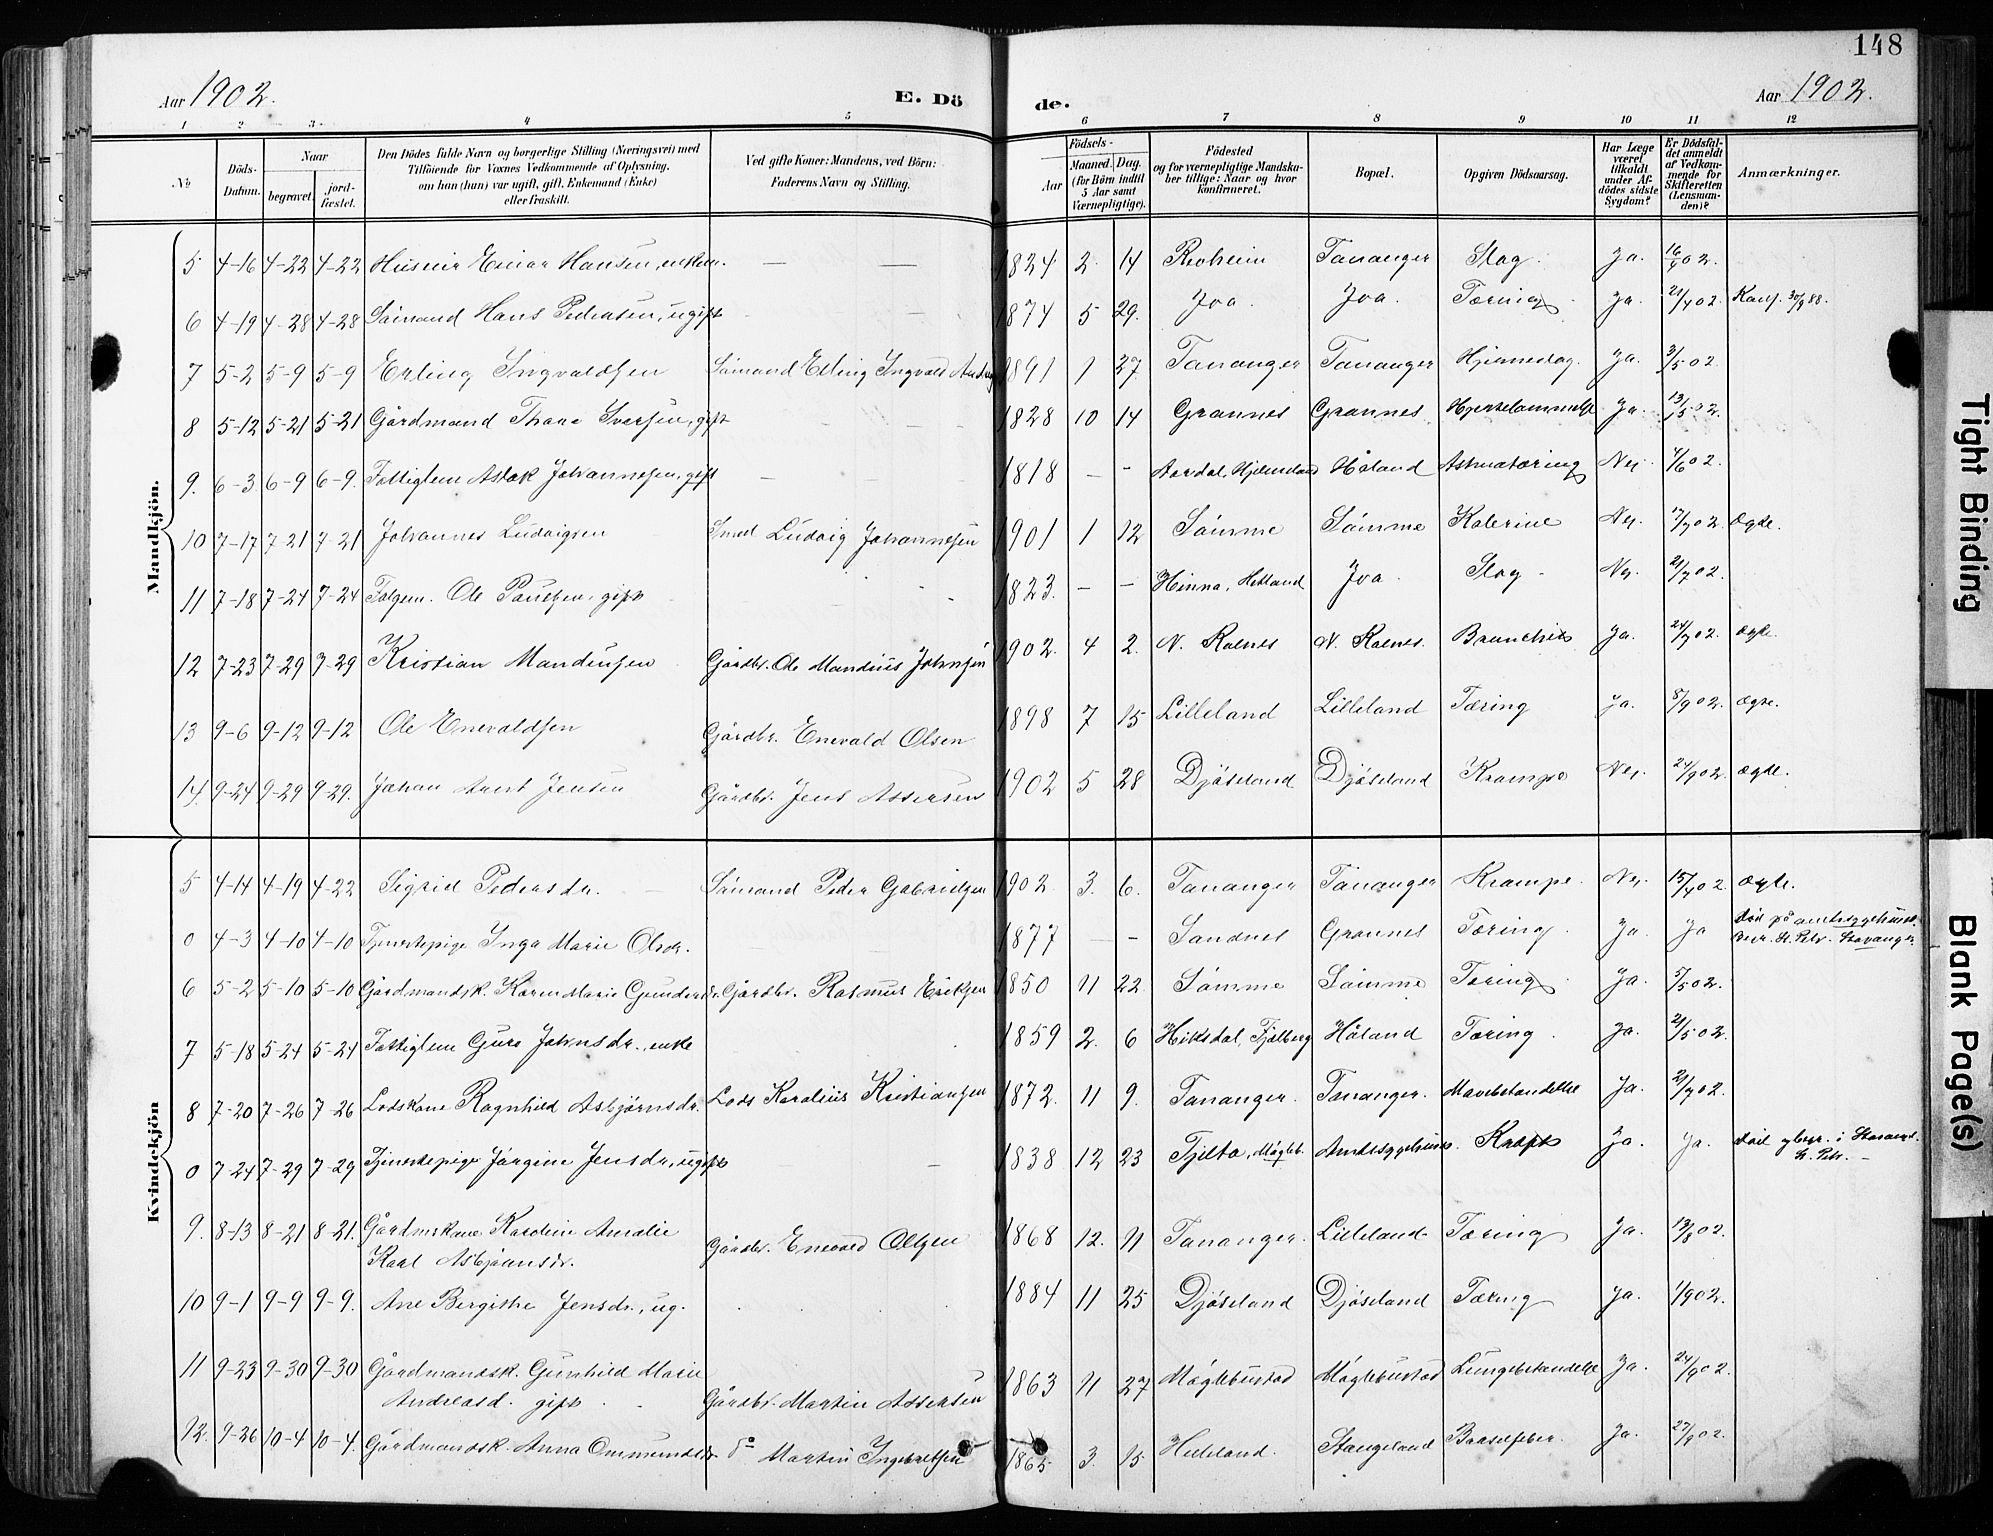 148
Aar 1902.
E. Dö
de.
Aar 1902.
1 2 3 4 5 6 7 8 9 10 11 12
No
Döds-Datum.
Naar
begravet.
jord-fæstet.
Den Dödes fulde Navn og borgerlige Stilling (Næringsvei) med
Tilföiende for Voxnes Vedkommende af Oplysning,
om han (hun) var ugift, gift, Enkemand (Enke)
eller fraskilt.
Ved gifte Koner: Mandens, ved Börn:
Faderens Navn og Stilling.
Födsels-
Aar
Maaned. Dag.
(for Börn indtil
5 Aar samt
Værnepligtige).
Födested
og for værnepligtige Mandska-
ber tillige: Naar og hvor
konfirmeret.
Bopæl.
Opgiven Dödsaarsag.
Har Læge
været
tilkaldt
under Af-
dödes sidste
Sygdom?
Er Dödsfal-
det anmeldt
af Vedkom-
mende for
Skifteretten
(Lensman-
den)?
Anmærkninger.
Mandkjön.
5 4-16 4-22 4-22 Husmd Einar Hansen, enkem. — — 1824 2. 14 Risheim Tananger Slag. Ja. 16/4 02.
6 4-19 4-28 4-28 Sömand Hans Pedersen, ugift - - 1874 5 29. Joa. Joa. Tæring. Ja. 21/4 02. Konf. 30/9 88.
7 5-2 5-9 5-9 Erling Ingvaldsen Sömand Erling Ingvald 1891 1 27. Tananger Tananger Hjerneslag. Ja. 3/5 02.
8 5-12 5-21 5-21 Gårdmand Thore Iversen, gift - - 1828 10 14 Grannes Grannes Hjertelammelse Ja. 13/5 02.
9. 6-3 6-9 6-9. Fattiglem Aslak Johannesen, gift - - 1818 — - Aardal, Hjelmeland Håland Astmatæring Nei. 4/6 02.
10 7-17 7-21 7-21 Johannes Ludvigsen Smed Ludvig Johannesen 1901 1 12 Sömme Sömme Kolerine Nei. 17/7 02. Ægte.
11 7-18 7-24 7-24 Ole Paulsen, gift 1823. - - Hinna, Hetland Joa. Slag - Nei. 21/7 02.
12 7-23 7-29 7-29 Kristian Mandiusen Gårdbr. Ole Mandius Johnsen 1902. 4 2. N. Kolnes N. Kolnes. Bronchit Ja. 24/7 02. Ægte.
13 9-6 9-12 9-12 Ole Enevaldsen Gårdbr. Enevald Olsen 1898 7 15 Lilleland Lilleland Tæring Ja. 8/9 02. Ægte.
14. 9-24 9-29 9-29. Johan Arent Jensen Gårdbr. Jens Assersen 1902 5 28 Djöseland Djöseland Krampe Nei. 24/9 02. Ægte.
Kvindekjön
5 4-14 4-19 4-22 Sigrid Pedersdr. Sömand Peder Gabrielsen 1902. 3. 6. Tananger Tananger Krampe. Nei. 15/4 02. Ægte.
0 4-3 4-10 4-10 Tjenestepige Inga Marie Olsdr. 1877 - - Sandnes Grannes Tæring. Ja. Ja Död på amtssygehuset. Begr. St. Petr. Stavanger.
6 5-2 5-10 5-10 Gårdmandsk. Karen Marie Gundersdr. Gårdbr. Rasmus Eriksen 1850 11 22. Sömme Sömme Tæring Ja. 5/5 02.
7 5-18 5-24 5-24 Fattiglem Guro Johnsdr., enke 1859 2. 6 Hiksdal, Fjelberg Håland Tæring. Ja. 21/5 02.
8 7-20 7-26 7-26 Lodskone Ragnhild Asbjørnsdr. Lods Karolius Kristiansen 1872. 11 9. Tananger. Tananger. Mavebetændelse Ja. 21/7 02.
0 7-24 7-29 7-29 Tjenestepige Jørgine Jensdr., ugift - 1838 12 23 Tjelta, Mögleb. Amtssygehuset. Kræft Ja. Ja. Död og begr. i Stavang. St. Petr. -
9. 8-13 8-21 8-21. Gårdmskone Karoline Amalie
Karl Asbjörnsdr. Gårdbr. Enevald Olsen 1868 12. 11 Tananger. Lilleland. Tæring Ja. 19/8 02.
10 9-1 9-9 9-9. Ane Bergithe Jensdr., ug. 1884 11 25 Djöseland Djöseland Tæring Ja. 1/9 02.
11 9-23 9-30 9-30 Gårdmandsk. Gunhild Marie
Andreasd. gift. Gårdbr. Martin Assersen 1863 11 27 Möglebustad Möglebustad Lungebetændelse Ja. 24/9 02.
12. 9-26 10-4 10-4. Gårdmandsk. Anna Ommundsdr. do Martin Ingebretsen 1865 3. 15. Heleland. Stangeland Barselfeber. Ja. 27/9 02.
Tight Binding
Blank Page(s)